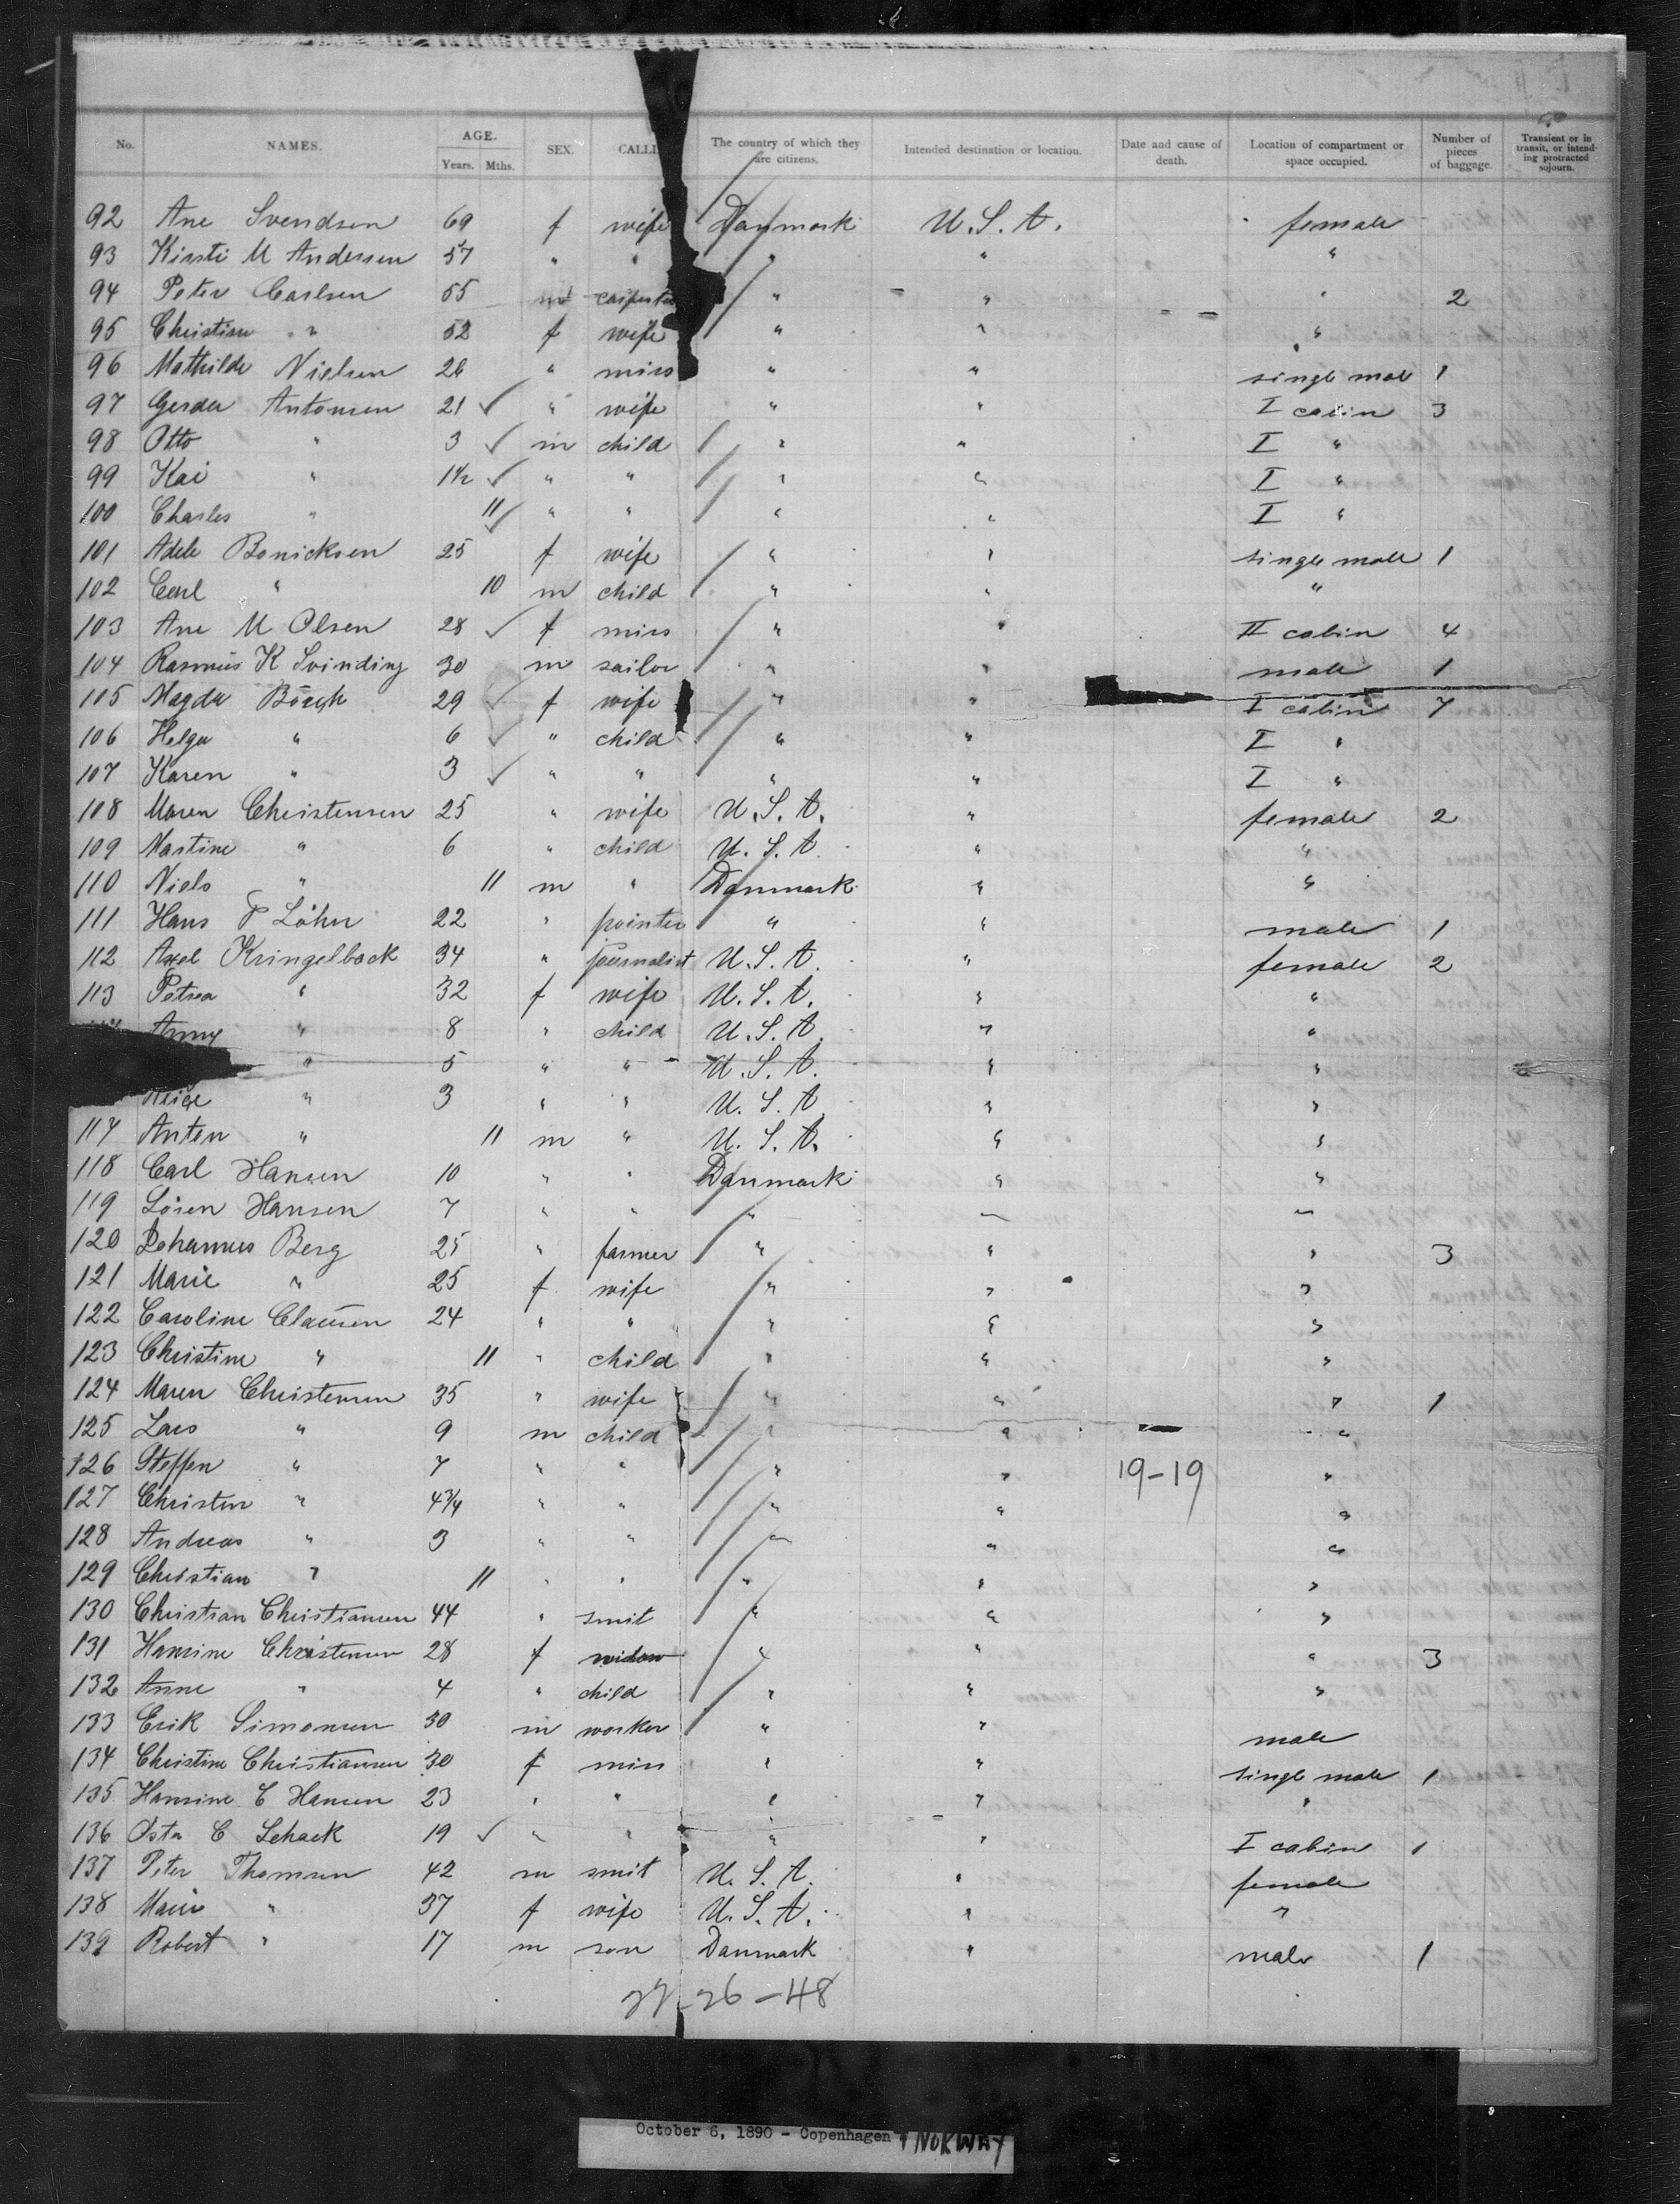 No. NAMES. AGE. Years. Mths. SEX. CALLI The country of which they are citizens. Intended destination or location. Date and cause of death. Location of compartment or space occupied. Number of pieces of baggage. Transient or in transit, or intending protracted sojourn.
92 Ane Svendsen 69 f wife Danmark U.S.A. female
93 Kirsti M Andersen 57 " " " " "
94 Peter Carlsen 55 m carpente " " " 2
95 Christine " 52 f wife " " "
96 Mathilde Nielsen 26 " miss " " single male 1
97 Gerda Antonsen 21 ✓ " wife " " I cabin 3
98 Otto " 3 ✓ m child " " I "
99 Kai " 1½ ✓ " " " " I "
100 Charles " 11 ✓ " " " " I "
101 Adele Bonicksen 25 f wife " " single male 1
102 Carl " 10 m child " " "
103 Ane M Olsen 28 ✓ f miss " " II cabin 4
104 Rasmus K Svinding 30 m sailor " " male 1
105 Magda 29 ✓ f wife " " I cabin 7
106 Helga " 6 ✓ " child " " I "
107 Karen " 3 ✓ " " " " I "
108 Maren Christensen 25 " wife U.S.A. " female 2
109 Martine " 6 " child U.S.A. " "
110 Niels " 11 m " Danmark " "
111 Hans P Löhn 22 " pointer " " male 1
112 Axel Kringelback 34 " journalist U.S.A. " female 2
113 Petrea " 32 f wife U.S.A. " "
Anny " 8 " child U.S.A. " "
" 5 " " U.S.A. " "
" 3 " " U.S.A. " "
117 Anton " 11 m " U.S.A. " "
118 Carl Hansen 10 " " Danmark " "
119 Sören Hansen 7 " " " " "
120 Johannes Berg 25 " farmer " " " 3
121 Marie " 25 f wife " " "
122 Caroline Clausen 24 " " " " "
123 Christine " 11 " child " " "
124 Maren Christensen 35 " wife " " " 1
125 Lars " 9 m child " " "
126 Steffen " 7 " " " " 19-19 "
127 Christen " 4¾ " " " " "
128 Andreas " 3 " " " " "
129 Christian " 11 " " " " "
130 Christian Christiansen 44 " smit " " "
131 Hansine Christensen 28 f widow " " " 3
132 Anne " 4 " child " " "
133 Erik Simonsen 30 m worker " " male
134 Christine Christiansen 30 f miss " " single male 1
135 Hansine C Hansen 23 " " " " "
136 C Schack 19 ✓ " " " " I cabin 1
137 Peter Thomsen 42 m smit U.S.A. " female
138 Marie " 37 f wife U.S.A. " "
139 Robert " 17 m son Danmark " male 1
26-48
October 6, 1890 - Copenhagen & NORWAY